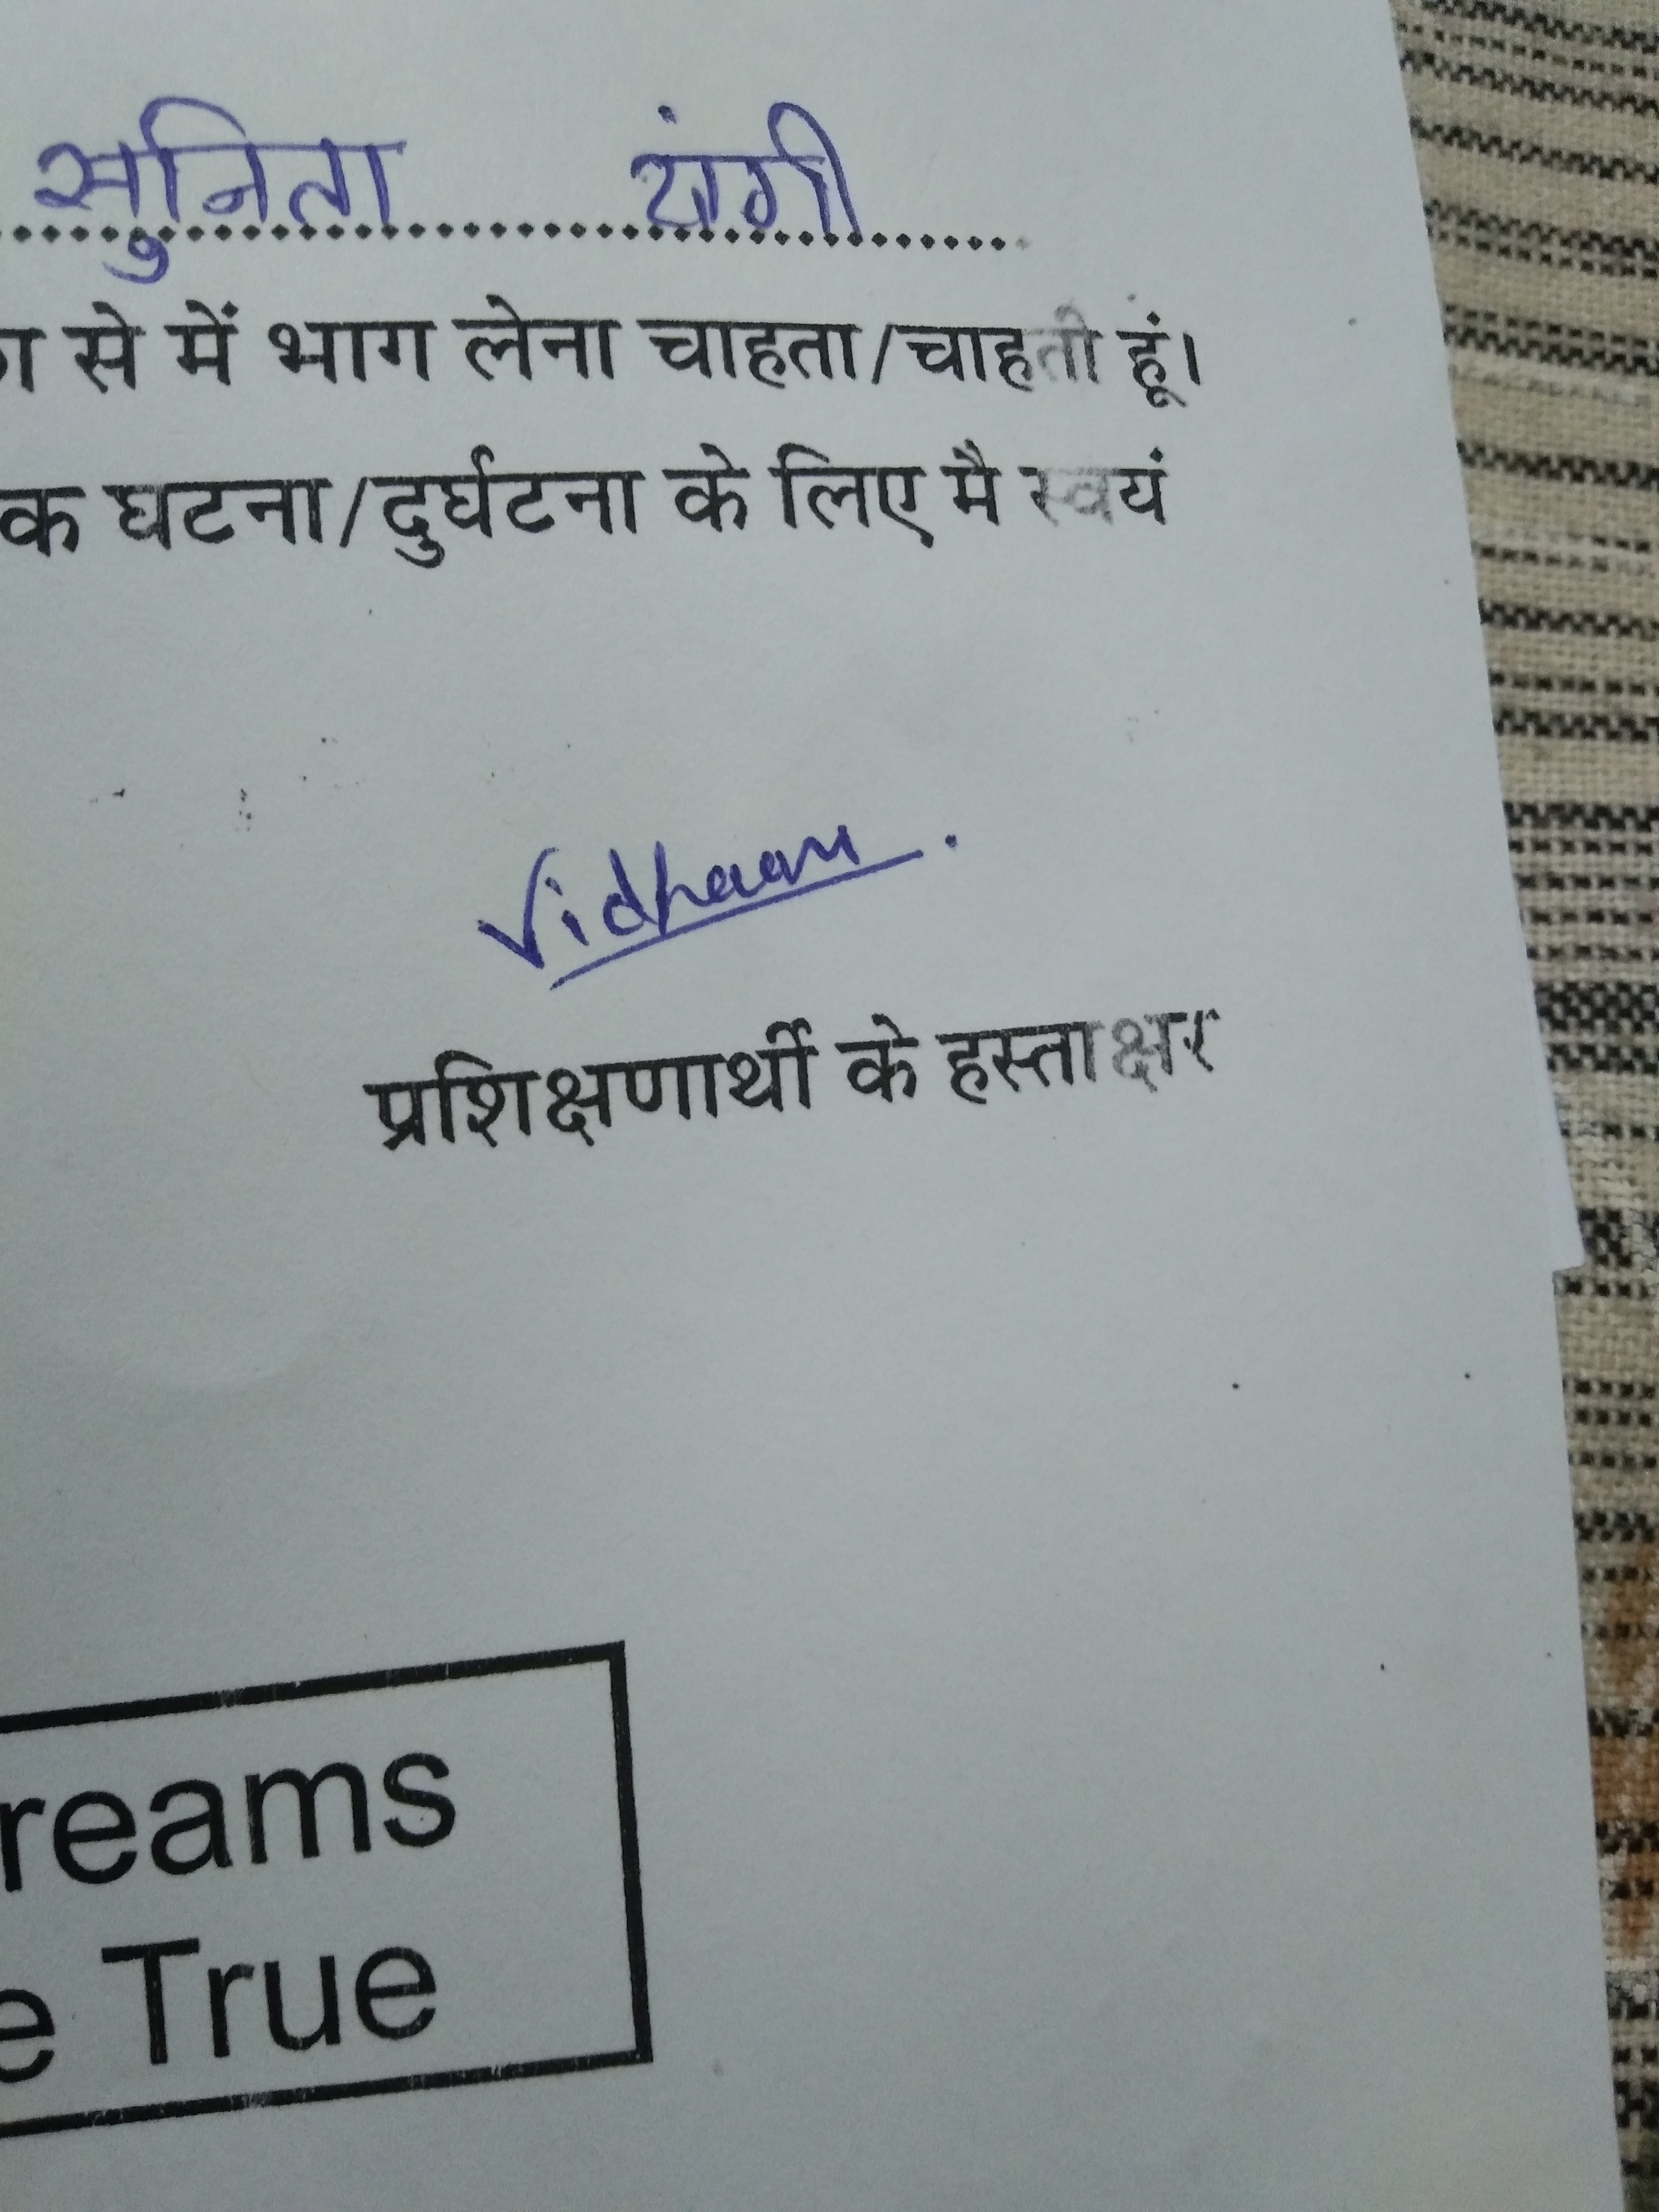 सुनिता यांगी
से में भाग लेना चाहता/चाहती हूं।
क घटना/दुर्घटना के लिए मै स्वयं
Vidhaan.
प्रशिक्षणार्थी के हस्ताक्षर
reams
e True